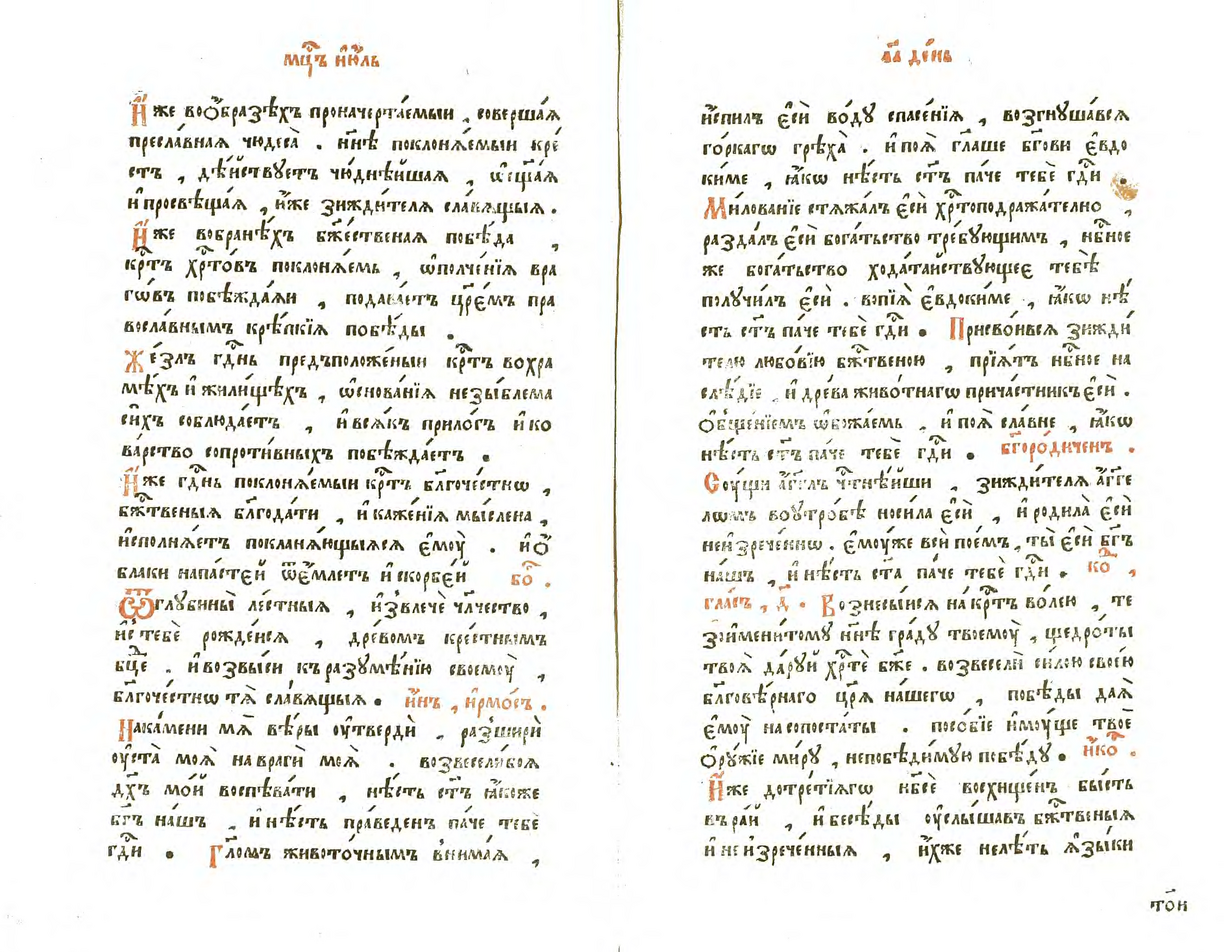 мцⷭ҇ъ і҆ю́ль
И҆́же воѻ҆́бразѣхъ проначерта́емыи , соверша́ѧ
пресла́внаѧ чюдеса̀ . нн҃ѣ поклонѧ́емыи крⷭ҇е́
стъ , дѣ́йствуетъ чю́днѣйшаѧ , ѡ҆сщ҃а́ѧ
и҆ просвѣща́ѧ , и҆́же зижди́телѧ сла́вѧщыѧ .
И҆́же вобране́хъ бж҃е́ственаѧ побѣ́да ,
крⷭ҇тъ хрⷭ҇то́въ поклонѧ́емь , ѡ҆полче́нїѧ вра
гѡ́въ побѣжда́ѧи , подава́етъ цр҃є́мъ пра
восла́внымъ крѣ́пкїѧ побѣ́ды .
Же́злъ гдⷭ҇нь предъположе́ныи крⷭ҇тъ вохра
мѣ́хъ и҆ жили́щѣхъ , ѡ҆снова́нїѧ незы́блема
си́хъ соблюда́етъ , и҆ всѧ́къ прило́гъ и҆ ко
ва́рство сопроти́вныхъ побѣжда́етъ .
И҆́же гдⷭ҇нь поклонѧ́емыи крⷭ҇тъ бл҃гоче́стнѡ ,
бжⷭ҇твеныѧ бл҃года́ти , и҆ каже́нїѧ мы́слена ,
и҆сполнѧ́етъ покланѧ́ющыѧсѧ є҆моу̀ . и҆ ѻ҆́
блаки напа́стєй ѿе́млетъ и҆ скорбе́й бо҃ .
Ѿ глубины̀ ле́стныѧ , и҆звлечѐ чл҃чество ,
и҆с тебѐ рожде́исѧ , дре́вомъ кре́стнымъ
бц҃е . и҆ возвы́си къ разумѣ́нїю своемоу̀ ,
бл҃гоче́стнѡ тѧ̀ сла́вѧщыѧ . и҆́нъ , і҆рмо́съ .
На ка́мени мѧ̀ вѣ́ры оу҆твердѝ , разширѝ
оу҆ста̀ моѧ̀ на врагѝ моѧ̀ . возвесели́босѧ
дх҃ъ мо́й воспѣва́ти , нѣ́сть ст҃ъ ꙗ҆́коже
бг҃ъ на́шъ , и҆ нѣ́сть пра́веденъ па́че тебѐ
гдⷭ҇и . Гл҃омъ живото́чнымъ внима́ѧ ,
л҃а де́нь
и҆спи́лъ є҆сѝ во́ду спасе́нїѧ , возгнуша́всѧ
го́ркагѡ грѣха̀ . и҆ поѧ̀ гл҃аше бг҃ови є҆вдо
ки́ме , ꙗ҆́кѡ нѣ́сть ст҃ъ па́че тебѐ гдⷭ҇и .
Милова́нїе стѧжа́лъ є҆сѝ хрⷭ҇топодража́телно ,
разда́лъ є҆сѝ бога́тьство тре́бующимъ , нбⷭ҇ное
же бога́тьство хода́тайствующеє тебѣ̀
получи́лъ є҆сѝ . вопїѧ̀ є҆вдоки́ме , ꙗ҆́кѡ нѣ́
сть ст҃ъ па́че тебѐ гдⷭ҇и . Присво́ивсѧ зижди́
телю любо́вїю бжⷭ҇твеною , прїѧ́тъ нбⷭ҇ное на
слѣ́дїе , и҆ дре́ва живо́тнагѡ прича́стникъ є҆сѝ .
ѻ҆бще́нїемъ ѡ҆божа́емь , и҆ поѧ̀ сла́вне , ꙗ҆́кѡ
нѣ́сть ст҃ъ па́че тебѐ гдⷭ҇и . бг҃оро́диченъ .
Соу́щи а҆́гг҃лъ чⷭ҇тнѣ́йши , зижди́телѧ а҆́гге
лѡмъ воутро́бѣ носи́ла є҆сѝ , и҆ роди́ла є҆сѝ
неи҆зрече́ннѡ . є҆моу́же всѝ пое́мъ , ты̀ є҆сѝ бг҃ъ
на́шъ , и҆ нѣ́сть ст҃а па́че тебѐ гдⷭ҇и . коⷣ ,
гла́съ , д҃ . Вознесы́исѧ на крⷭ҇тъ во́лею , те
зоимени́тому нн҃ѣ гра́ду твоемоу̀ , щедро́ты
твоѧ̀ да́руй хрⷭ҇тѐ бж҃е . возвеселѝ си́лою свое́ю
бл҃говѣ́рнаго цр҃ѧ̀ на́шегѡ , побѣ́ды даѧ̀
є҆моу̀ на сопоста́ты . посо́бїе и҆моу́ще твоѐ
ѻ҆ру́жїе ми́ру , непобѣди́мую побѣ́ду . и҆́коⷭ҇ .
И҆́же до тре́тїѧгѡ нб҃сѐ восхище́нъ бы́сть
въ ра́й , и҆ бесѣ́ды оу҆слы́шавъ бжⷭ҇твеныѧ
и҆ неи҆зрече́нныѧ , и҆́хже нелѣ́ть ѧ҆зы́ки
то́и